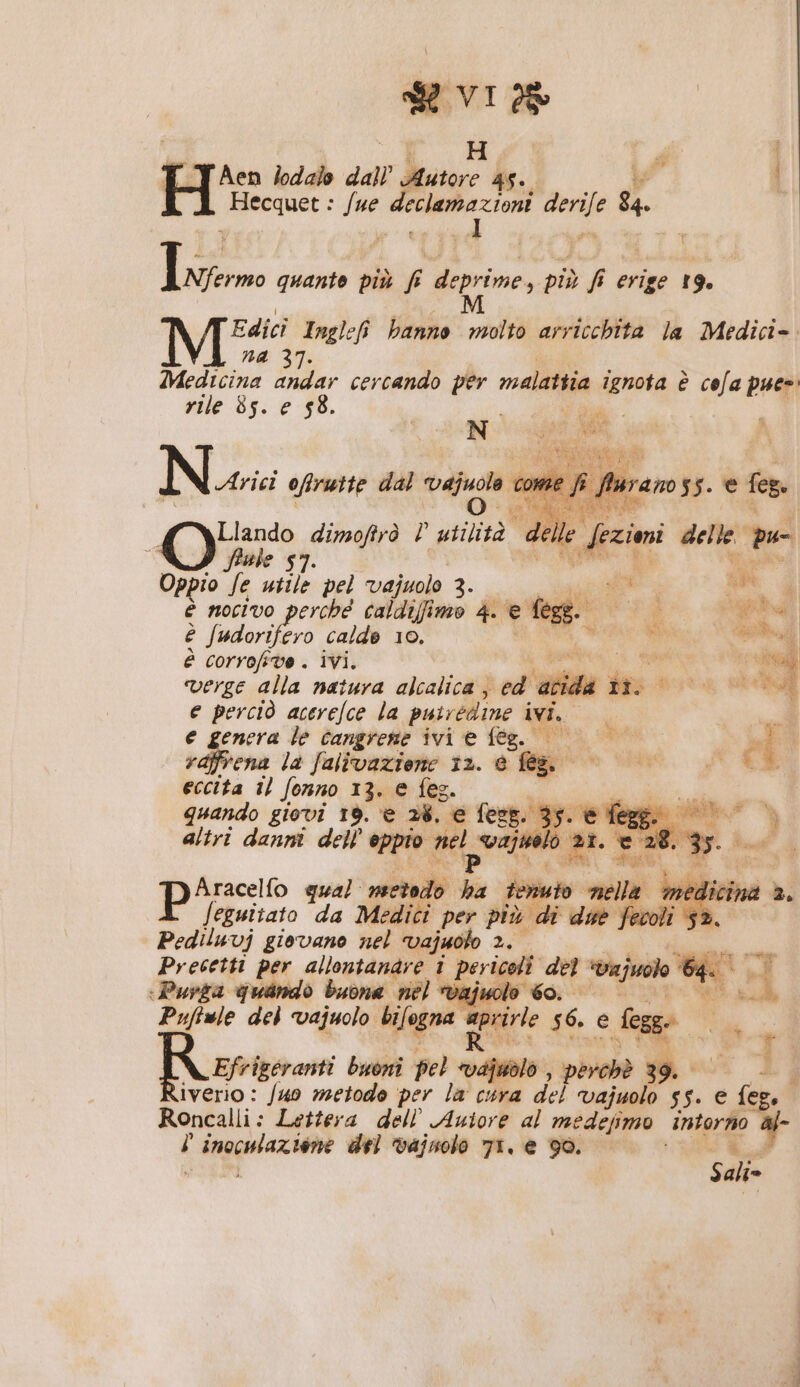 VI
H
HAen lodato dall' Autore 45.
Hecquet : ſue declamazioni deriſe 84.
I
INfermo quanto più ſi deprime, più ſi erige 19.
M
MEdici Ingleſi hanno molto arricchita la Medici-
na 37.
Medicina andar cercando per malattia ignota è coſa pue-
rile 85. e 58.
N
NArici oſtrutte dal vajuolo come ſi ſturano 55. e ſeg.
O
OLlando dimoſtrò l' utilità delle ſezioni delle pu-
ſtule 57.
Oppio ſe utile pel vajuolo 3.
è nocivo perché caldiſſimo 4. e ſegg.
è ſudorifero caldo 10.
è corroſivo . ivi.
verge alla natura alcalica , ed acida 11.
e perciò accreſce la putrédine ivi.
e genera le cangrene ivi e ſeg.
raffrena la ſalivazione 12. e ſeg.
eccita il ſonno 13. e ſeg.
quando giovi 19. e 28. e ſegg. 35. e ſegg.
altri danni dell' oppio nel vajuolo 21. e 28. 35.
P
PAracelſo qual metodo ha tenuto nella medicina 2.
ſeguitato da Medici per più di due ſecoli 52.
Pediluvj giovano nel vajuolo 2.
Precetti per allontanare i pericoli del vajuolo 64.
Purga quando buona nel vajuolo 60.
Puſtule del vajuolo biſogna aprirle 56. e ſegg.
R
REfrigeranti buoni pel vajuolo , perchè 39.
Riverio : ſuo metodo per la cura del vajuolo 55. e ſeg.
Roncalli : Lettera dell' Autore al medeſimo intorno al-
l' inoculazione del vajuolo 71. e 90.
Sali-